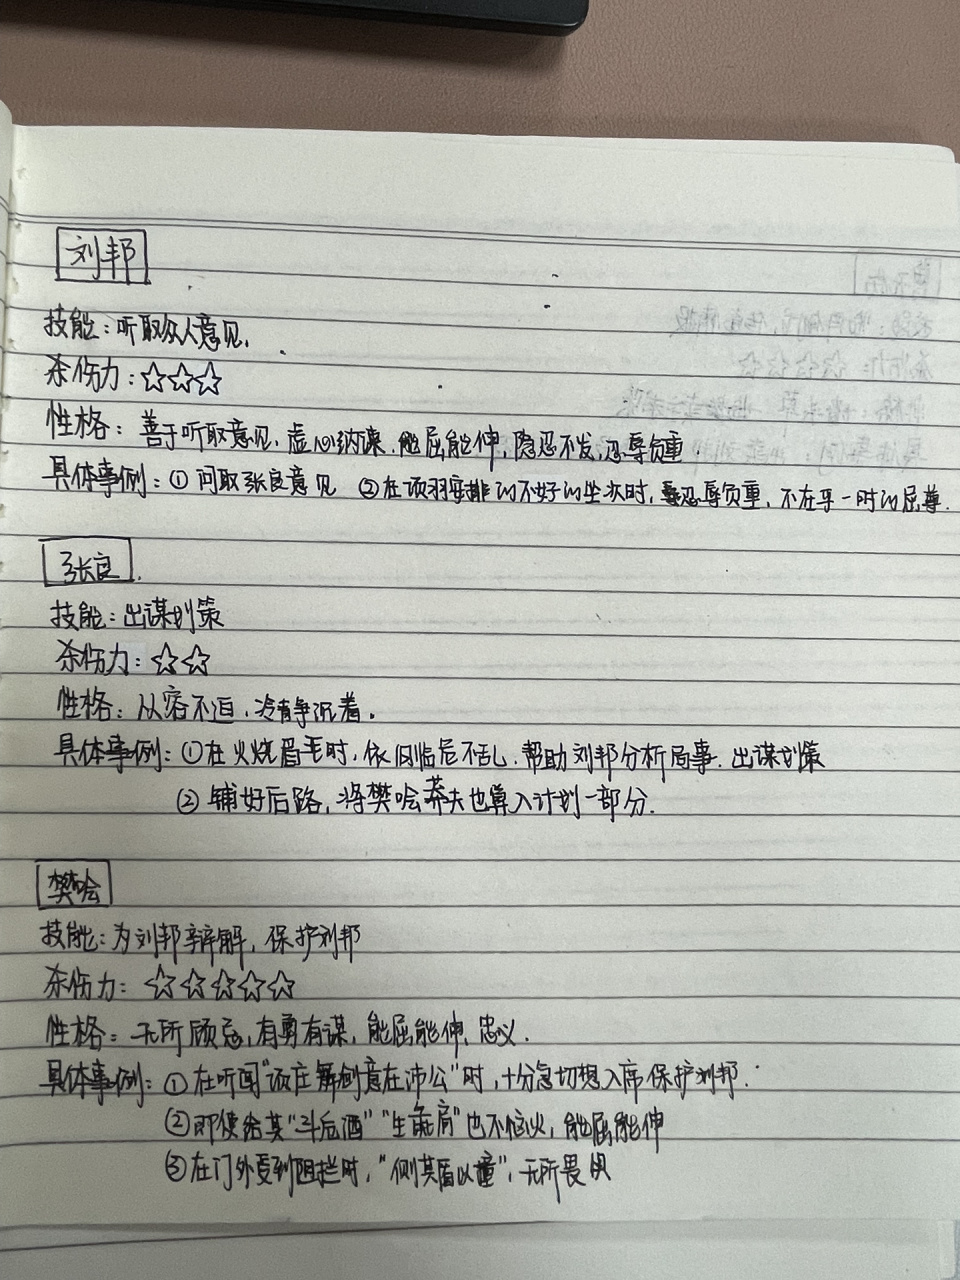 刘邦
技能：听取众人意见.
杀伤力：☆☆☆
性格：善于听取意见.虚心纳谏.能屈能伸,隐忍不发,忍辱负重.
具体事例：①问取张良意见 ②在项羽安排的不好的坐次时,忍辱负重,不在乎一时的屈辱.
张良.
技能：出谋划策
杀伤力：☆☆
性格：从容不迫,冷静沉着.
具体事例：①在火烧眉毛时,依旧临危不乱.帮助刘邦分析局事.出谋划策
②铺好后路,将樊哙莽夫也算入计划一部分.
樊哙
技能：为刘邦辩解,保护刘邦
杀伤力：☆☆☆☆☆
性格：无所顾忌,有勇有谋,能屈能伸,忠义.
具体事例：①在听闻“项庄舞剑意在沛公”时,十分急切想入席保护刘邦.
②即使给其“斗卮酒”“生彘肩”也不恼火,能屈能伸
③在门外受到阻拦时,“侧其盾以撞”,无所畏惧